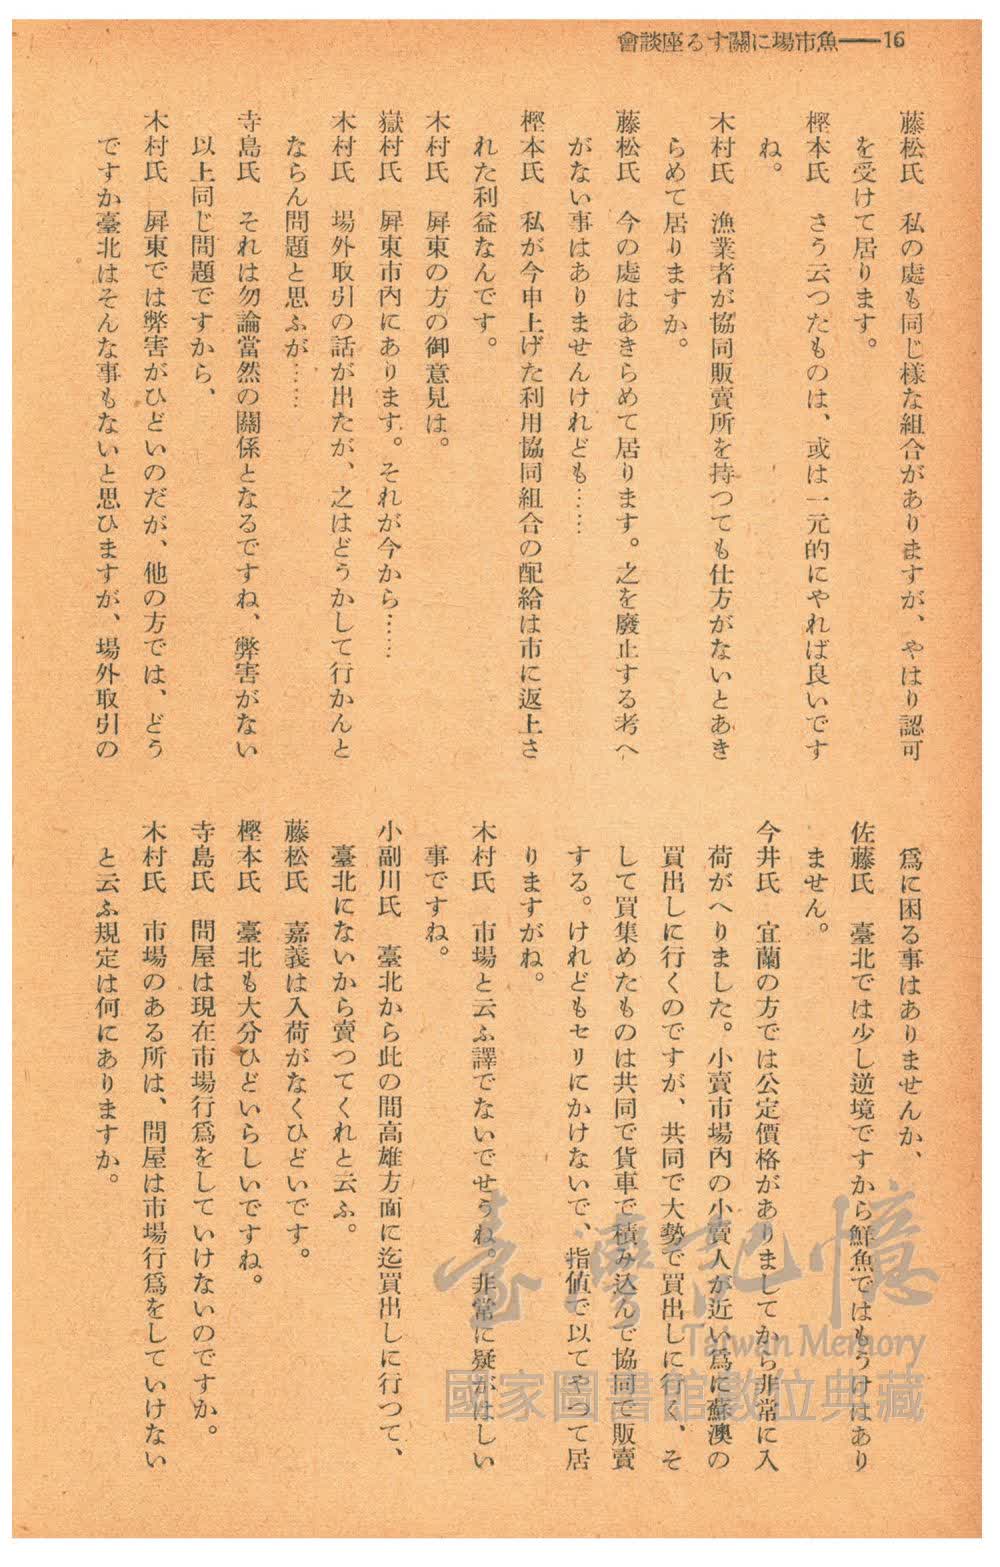 會談座るす關に場市魚——16
藤松氏　私の處も同じ樣な組合がありますが、やはり認可
を受けて居ります。
樫本氏　さう云つたものは、或は一元的にやれば良いです
ね。
木村氏　漁業者が協同販賣所を持つても仕方がないとあき
らめて居りますか。
藤松氏　今の處はあきらめて居ります。之を廢止する考へ
がない事はありませんけれども……
樫本氏　私が今申上げた利用協同組合の配給は市に返上さ
れた利益なんです。
木村氏　屛東の方の御意見は。
嶽村氏　屛東市內にあります。それが今から……
木村氏　場外取引の話が出たが、之はどうかして行かんと
ならん問題と思ふが……
寺島氏　それは勿論當然の關係となるですね、弊害がない
以上同じ問題ですから、
木村氏　屛東では弊害がひどいのだが、他の方では、どう
ですか臺北はそんな事もないと思ひますが、場外取引の
爲に困る事はありませんか、
佐藤氏　臺北では少し逆境ですから鮮魚ではもうけはあり
ません。
今井氏　宜蘭の方では公定價格がありましてから非常に入
荷がへりました。小賣市場內の小賣人が近い爲に蘇澳の
買出しに行くのですが、共同で大勢で買出しに行く、そ
して買集めたものは共同で貨車で積み込んで協同で販賣
する。けれどもセリにかけないで、指値で以てやつて居
りますがね。
木村氏　市場と云ふ譯でないでせうね。非常に疑がはしい
事ですね。
小副川氏　臺北から此の間高雄方面に迄買出しに行つて、
臺北にないから賣つてくれと云ふ。
藤松氏　嘉義は入荷がなくひどいです。
樫本氏　臺北も大分ひどいらしいですね。
寺島氏　問屋は現在市場行爲をしていけないのですか。
木村氏　市場のある所は、問屋は市場行爲をしていけない
と云ふ規定は何にありますか。
臺灣記憶
Taiwan Memory
國家圖書館數位典藏